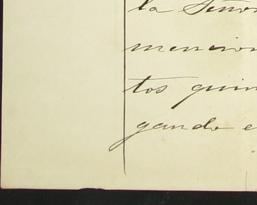 la Señor
mencion
tos quin
gando e